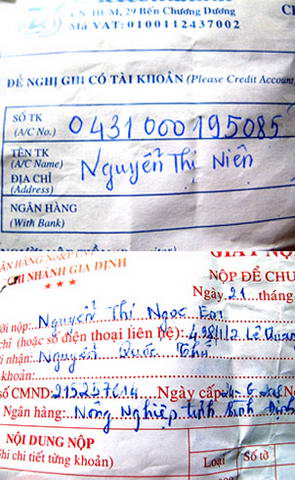 CN HCM, 29 Bến Chương Dương
Mã VAT: 0100112437002
ĐỀ NGHỊ GHI CÓ TÀI KHOẢN (Please Credit Account
SỐ TK
(A/C No.) 0431000195085
TÊN TK
(A/C Name) Nguyễn Thị Niên
ĐỊA CHỈ
(Address)
NGÂN HÀNG
(With Bank)
CHI NHÁNH GIA ĐỊNH
NỘP ĐỂ CHU
Ngày 21 tháng
ời nộp: Nguyễn Thị Ngọc
chỉ (hoặc số điện thoại liên hệ): Lê Quang
ời nhận: Nguyễn Quốc Thủ
khoản:
số CMND: 215237614 Ngày cấp
Ngân hàng: Nông Nghiệp tỉnh Bình Định
NỘI DUNG NỘP
Ghi chi tiết từng khoản)
Loại
Số t